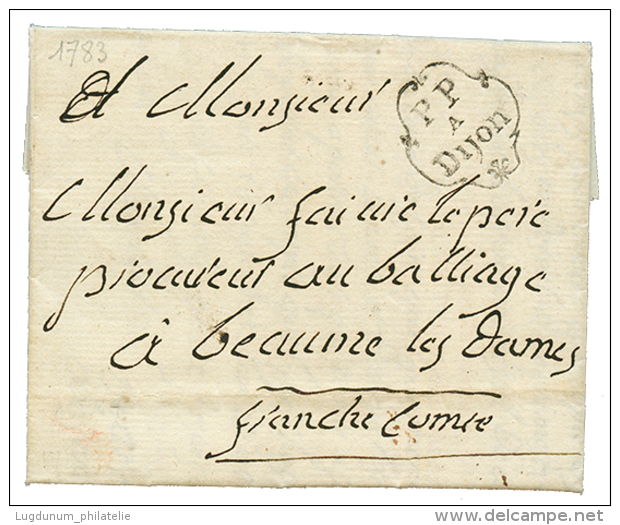 1783
A Monsieur
P P
A
Dijon
Monsieur faivre le pere
procureur au balliage
à beaume les dames
franche Comté
Lugdunum_philatelie